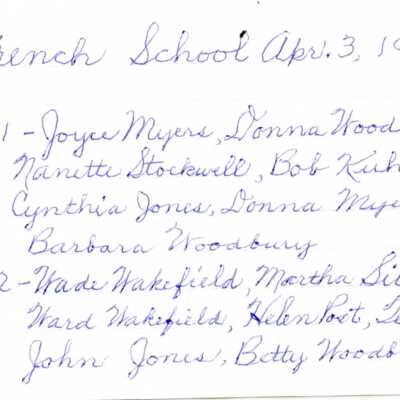 rench School Apr. 3, 19
1 - Joyce Myers, Donna Wood
Nanette Stockwell, Bob Kuh
Cynthia Jones, Donna Mye
Barbara Woodbury
2 - Wade Wakefield, Martha
Ward Wakefield, Helen Post,
John Jones, Betty Woodb